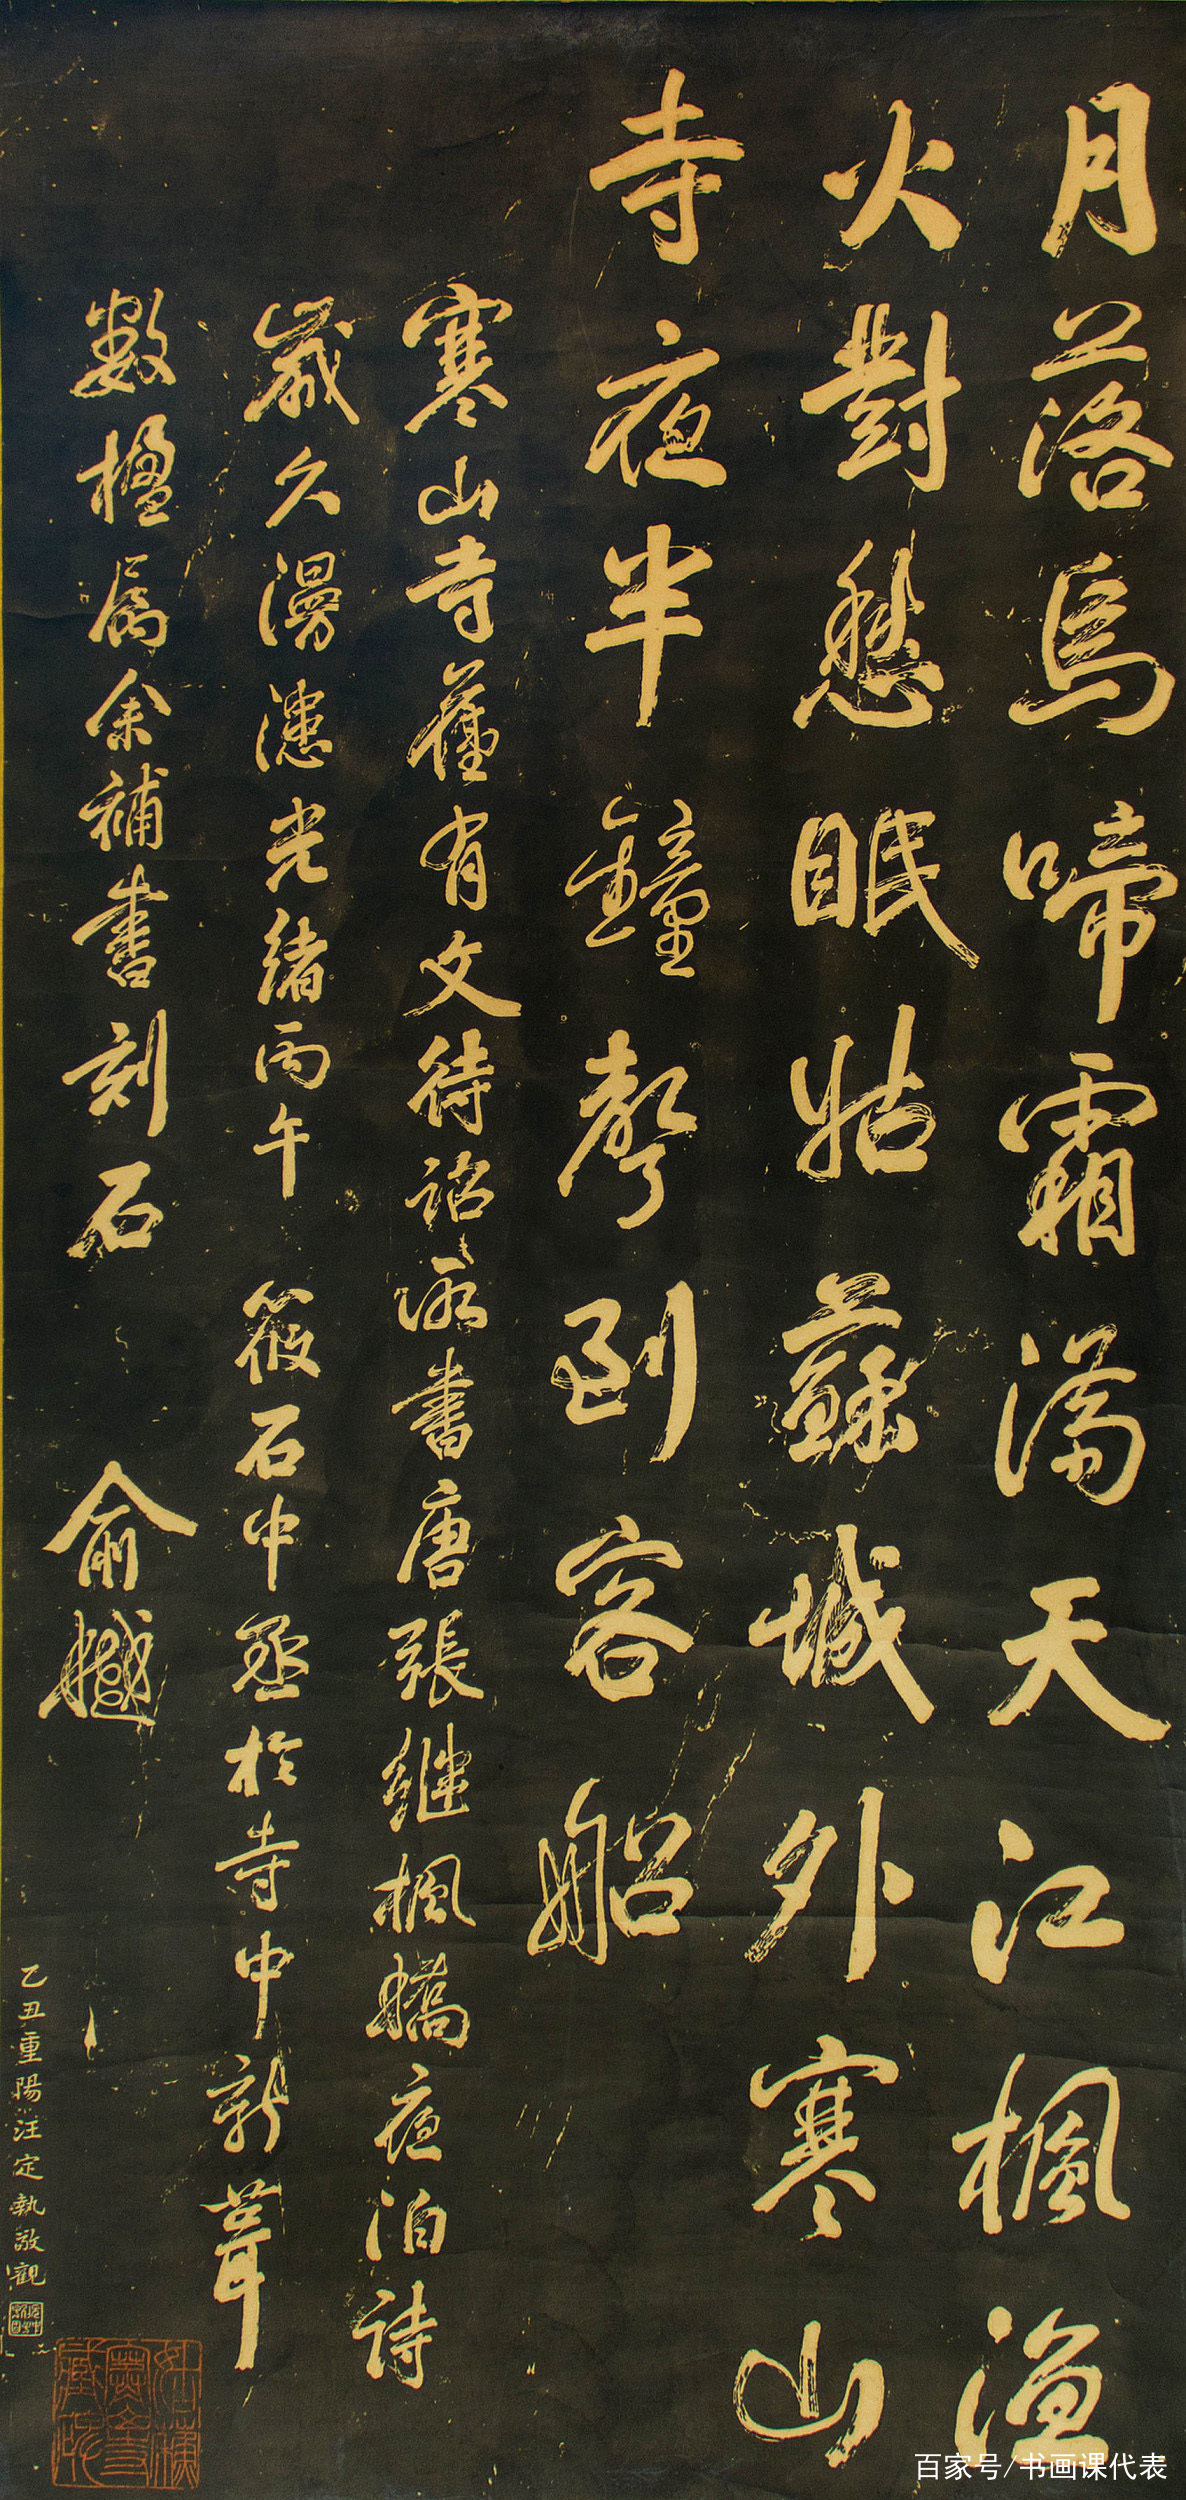 月落烏啼霜滿天江楓漁
火對愁眠姑蘇城外寒山
寺夜半鐘聲到客船
寒山寺舊有文待詔所書唐張继楓橋夜泊詩
歲久漫漶光緒丙午筱石中丞於寺中新葺
數楹属余補書刻石
俞樾
乙丑重陽汪定執敬觀
姑蘇寒山寺藏碑
百家号/书画课代表